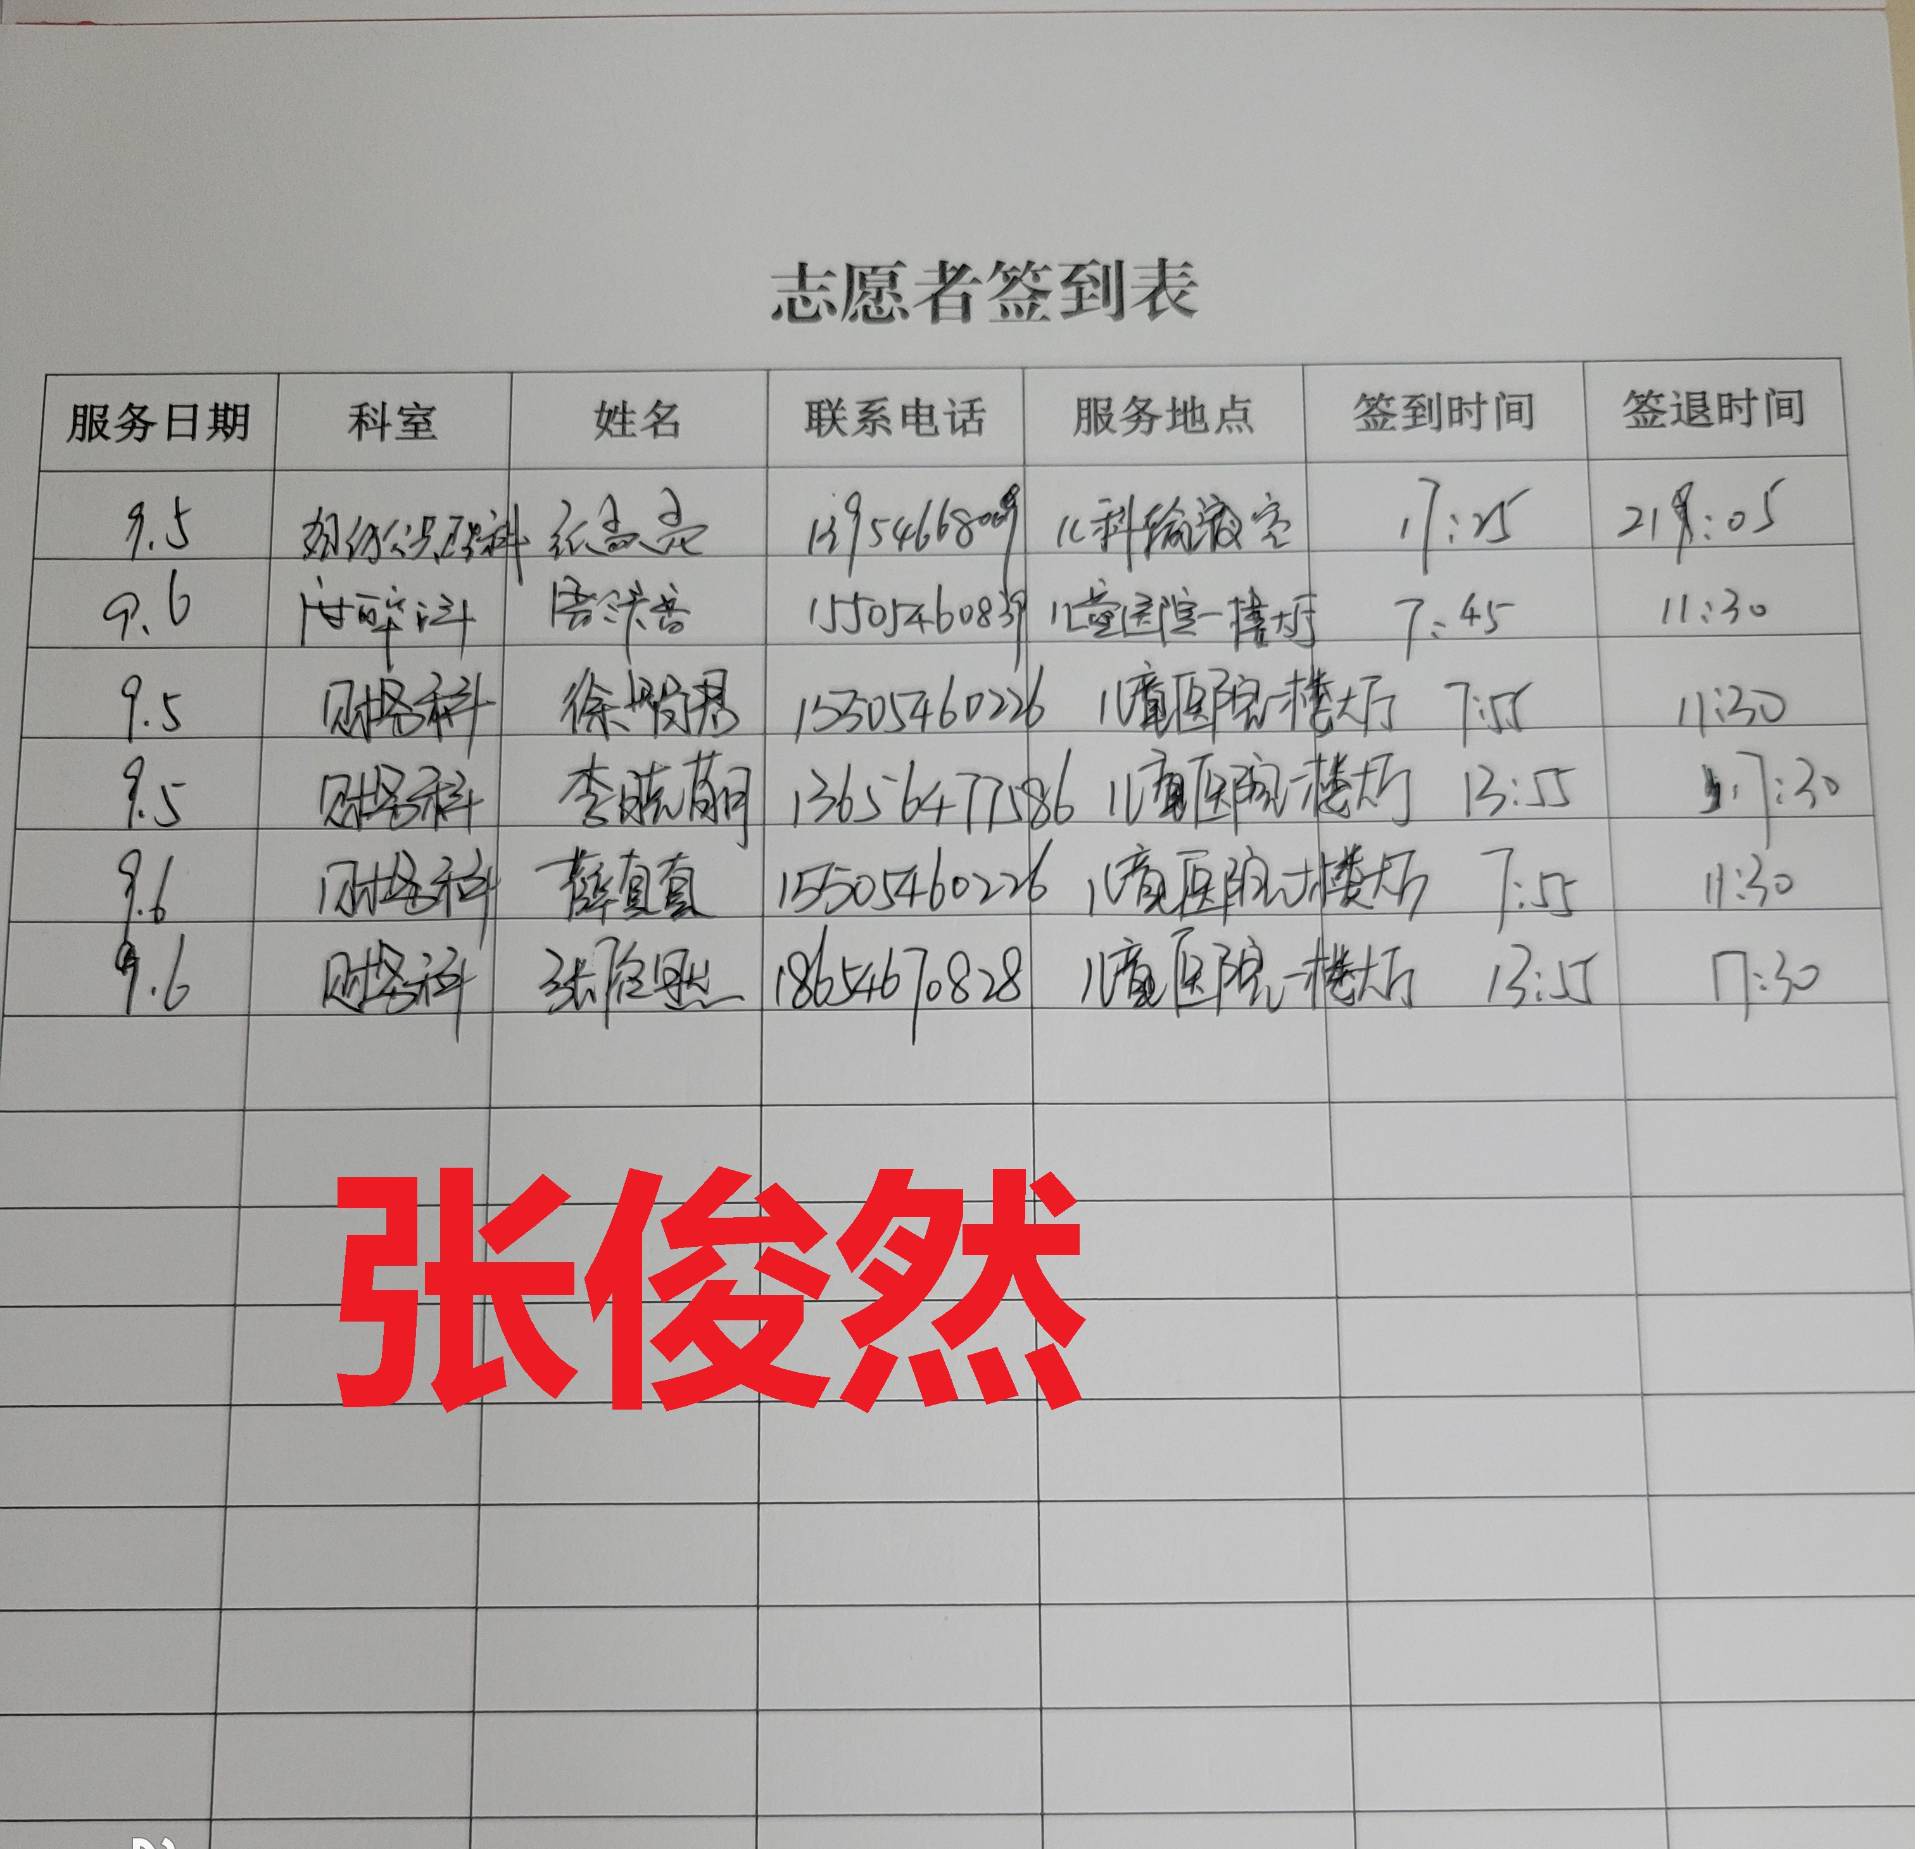 志愿者签到表
服务日期 科室 姓名 联系电话 服务地点 签到时间 签退时间
9.5 13954668009 儿科输液室 17:25 21:05
9.6 麻醉科 15505460839 儿童医院一楼大厅 7:45 11:30
9.5 财务科 徐 15505460226 儿童医院一楼大厅 7:55 11:30
9.5 财务科 李晓萌 13656477586 儿童医院一楼大厅 13:55 17:30
9.6 财务科 薛真真 15505460226 儿童医院一楼大厅 7:55 11:30
9.6 财务科 张俊然 18654670828 儿童医院一楼大厅 13:55 17:30
张俊然